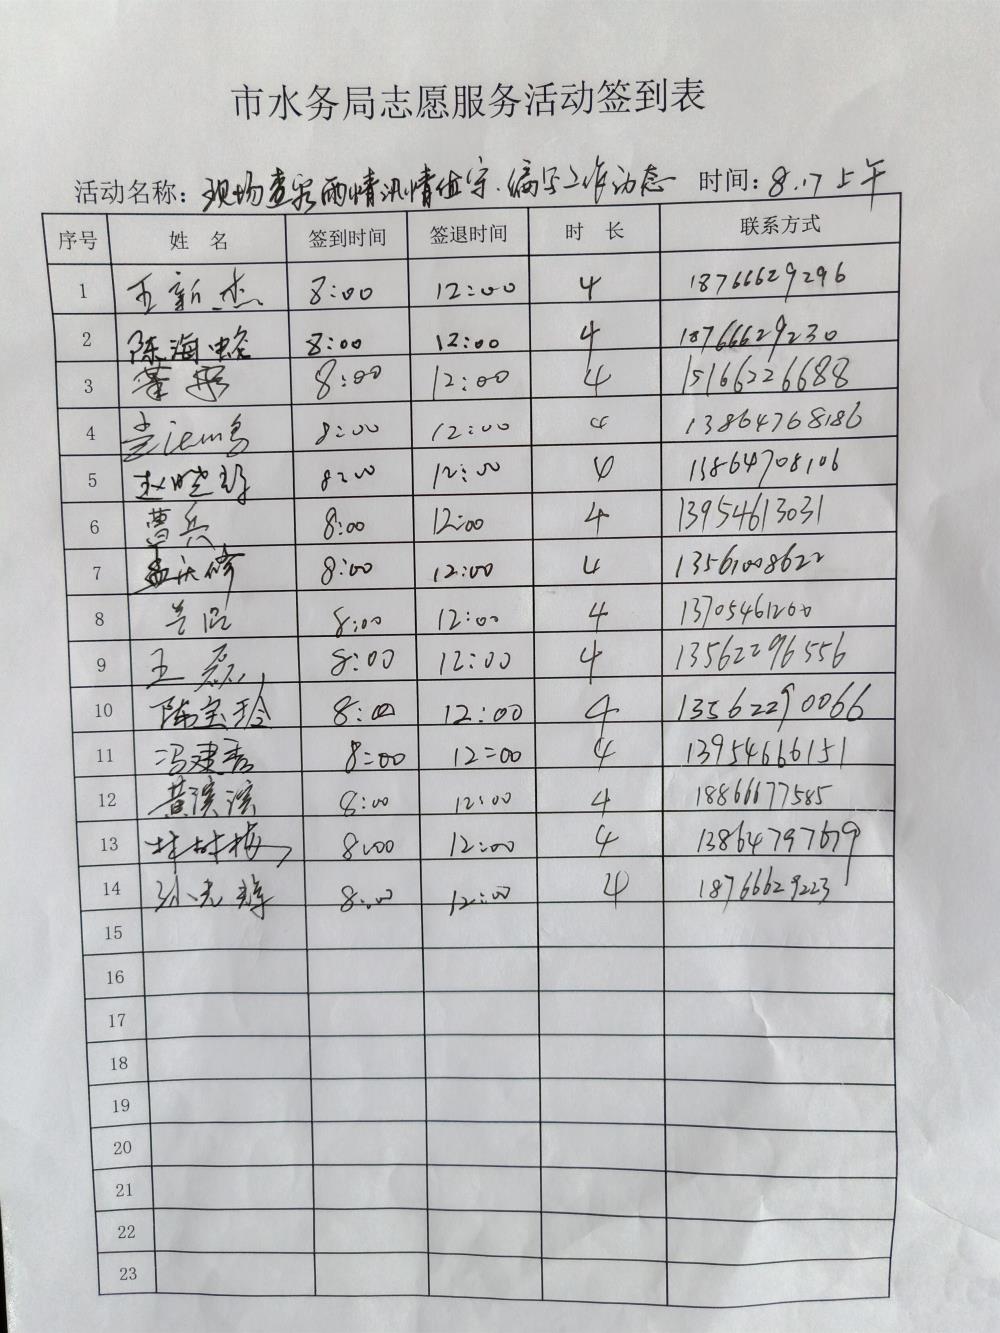 市水务局志愿服务活动签到表
活动名称：现场查看雨情汛情值守、编写工作动态 时间：8.17上午
序号 姓 名 签到时间 签退时间 时 长 联系方式
1 王新杰 8:00 12:00 4 18766629296
2 陈海 8:00 12:00 4 18766629230
3 董 8:00 12:00 4 15166226688
4 8:00 12:00 4 13864768186
5 赵晓 8:00 12:00 4 13864708106
6 曹兵 8:00 12:00 4 13954613031
7 孟庆修 8:00 12:00 4 13561008622
8 8:00 12:00 4 13705461200
9 王磊 8:00 12:00 4 13562296556
10 陈宝玲 8:00 12:00 4 13562290066
11 冯建秀 8:00 12:00 4 13954666151
12 黄滨滨 8:00 12:00 4 18866677585
13 林树梅 8:00 12:00 4 13864797679
14 孙光辉 8:00 12:00 4 18766629223
15
16
17
18
19
20
21
22
23